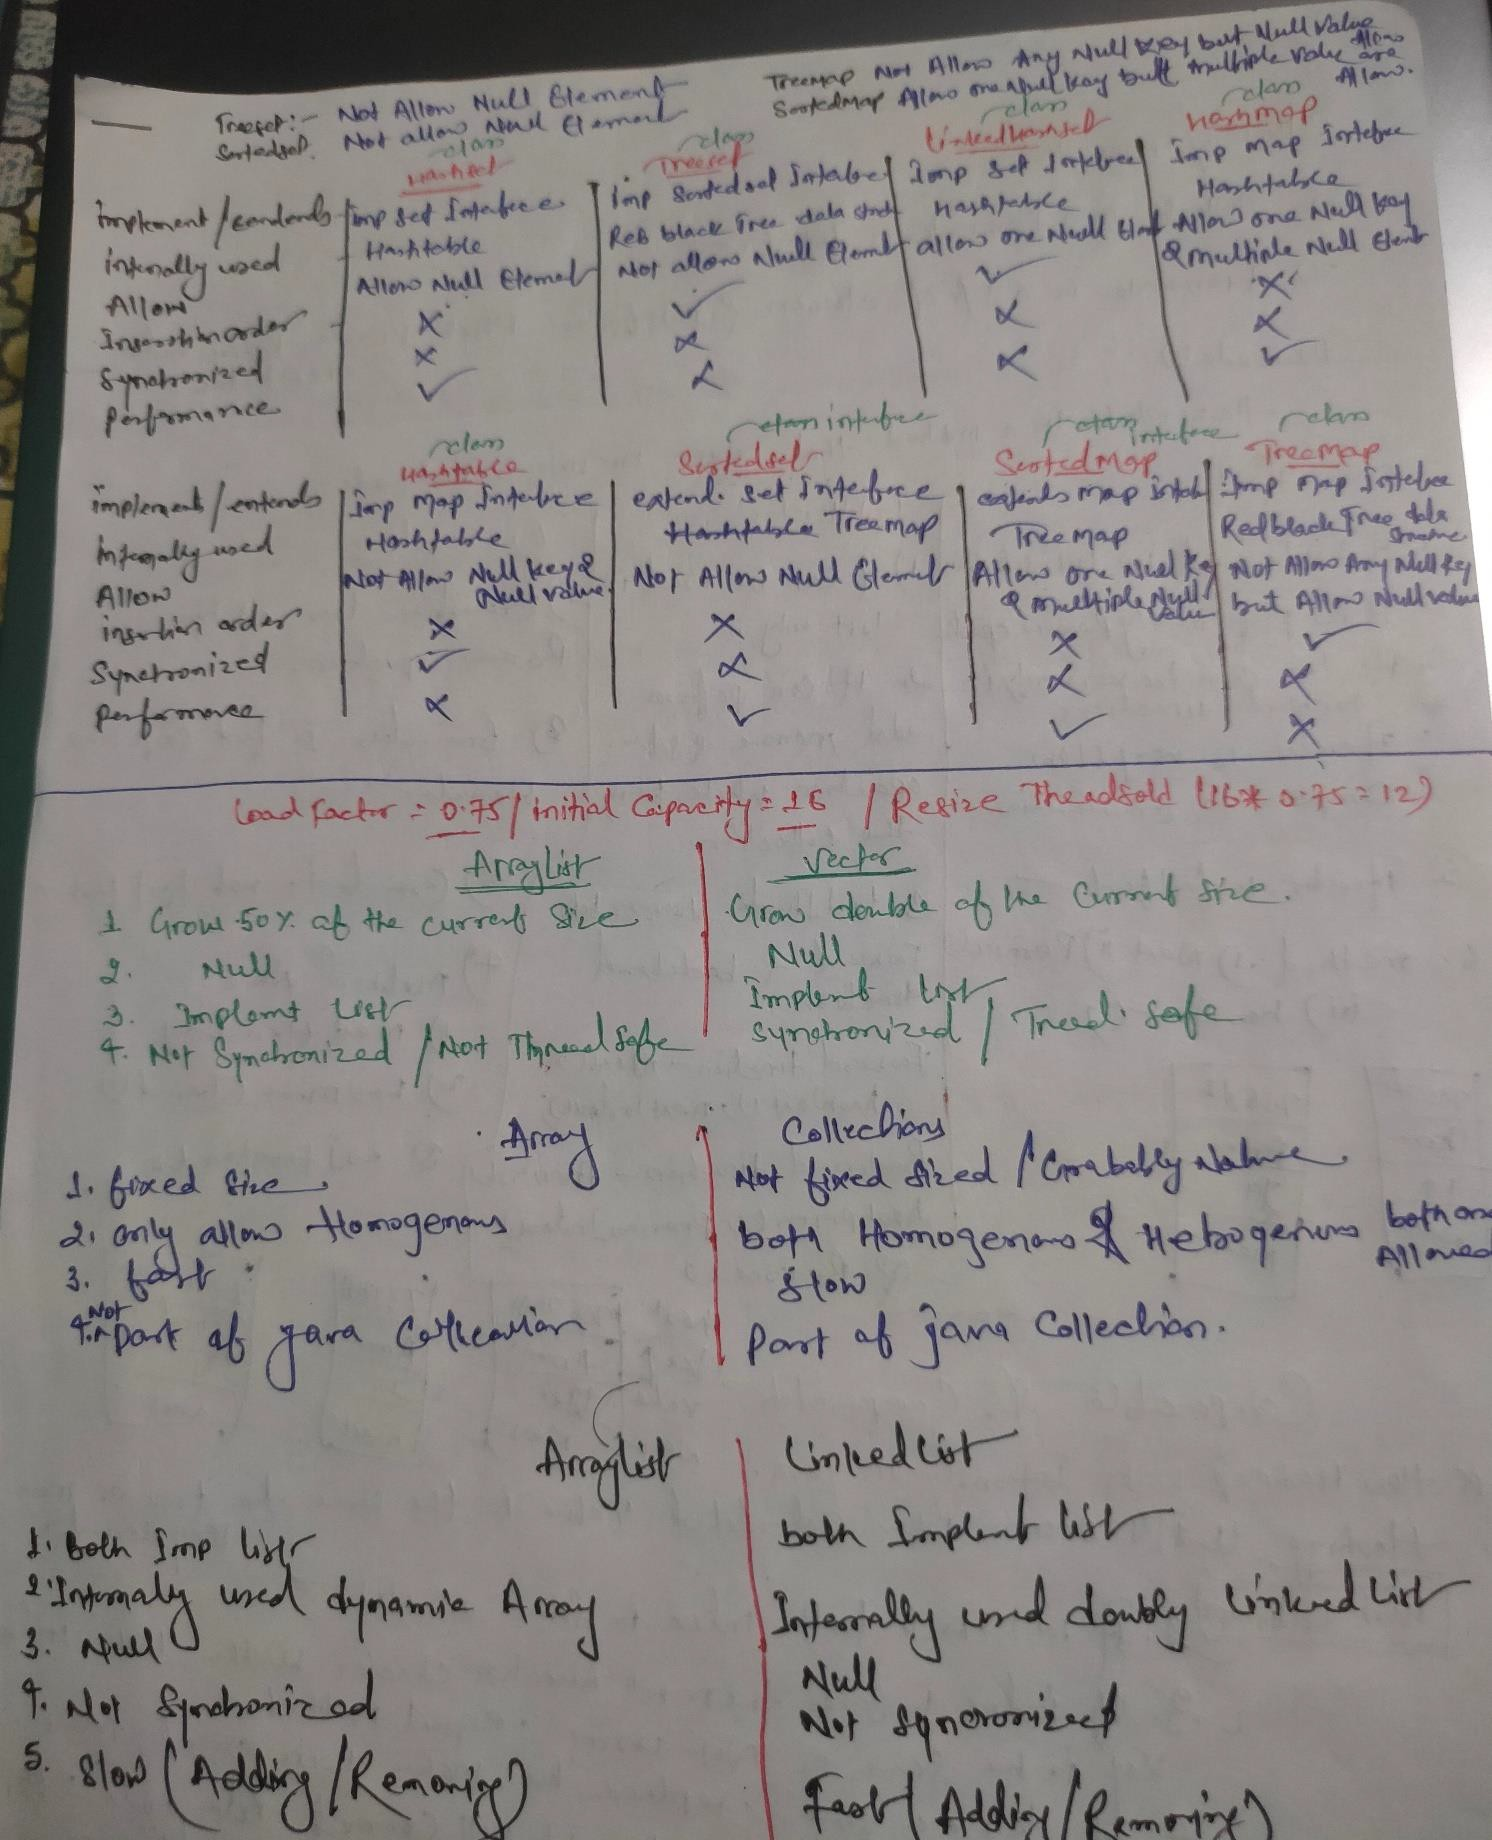 TreeMap Not Allow Any Null Key but Null Value Allow
SortedMap Allow one Null Key butt multiple Value are Allow.
Treeset:- Not Allow Null Element
Sortedset. Not allow Null Element
class class class class
Hashset Treeset LinkedHashset Hashmap
implement/extends Imp set Interface Imp Sortedset Interface Imp set Interface Imp Map Interface
internally used Hashtable Red black Tree data struct Hashtable Hashtable
Allow Allow Null Element Not allow Null Element allow one Null Element Allow one Null Key & multiple Null Element
Insertion order × ✓ ✓ ×
Synchronized × × × ×
performance ✓ × × ✓
class interface interface class
Hashtable Sortedset Sorted Map TreeMap
implements/extends Imp Map Interface extend. set Interface extends Map Interface Imp Map Interface
Internally used Hashtable TreeMap TreeMap Redblack Tree data structure
Allow Not Allow Null Key & Null value Not Allow Null Element Allow one Null Key & multiple Null Value Not Allow Any Null Key but Allow Null value
insertion order × × × ✓
Synctronized ✓ × × ×
performance × ✓ ✓ ×
Load factor = 0.75 / initial Capacity = 16 / Resize Theadsold (16* 0.75 = 12)
ArrayList Vector
1 Grow 50% of the current Size Grow double of the Current size.
2. Null Null
3. Implemt List Implent List
4. Not Synchronized / Not Thread Safe Synctronized / Tread. Safe
Array Collections
1. fixed Size Not fixed sized / Grabably Nature
2. only allow Homogenous both Homogenous & Hetrogenius both are Allowed
3. fast Slow
4. Not part of java Collection Part of java Collection.
Arraylist Linked List
1. Both Imp List both Implent List
2. Internaly used dynamic Array Internally used doubly Linked List
3. Null Null
4. Not Synchonized Not Syncronized
5. Slow (Adding/Removing) Fast (Adding/Removing)